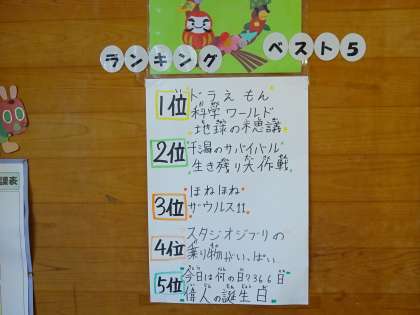 ランキング ベスト5
1位 ドラえもん
科学ワールド
地球の不思議
2位 干潟のサバイバル
生き残り大作戦
3位 ほねほね
ザウルス11
4位 スタジオジブリの
乗り物がいっぱい
5位 今日は何の日?366日
偉人の誕生日
課表